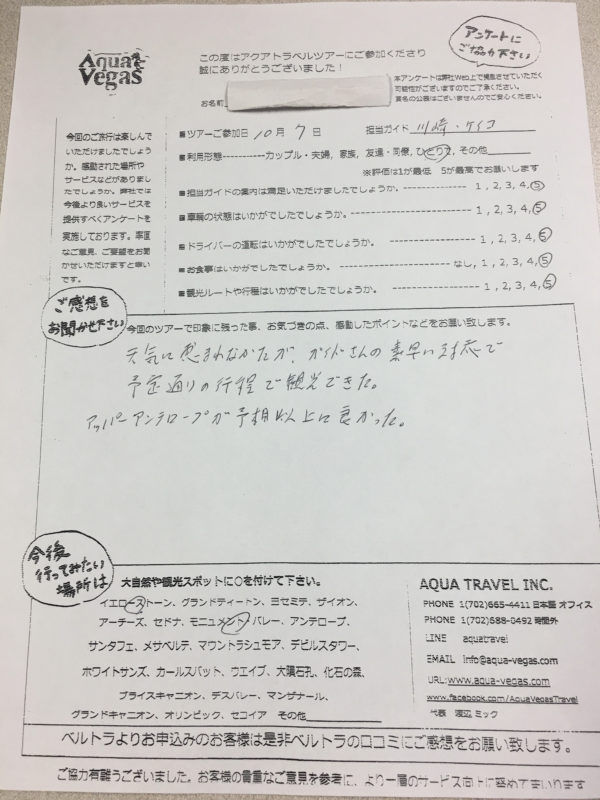 Aqua Vegas
この度はアクアトラベルツアーにご参加くださり
誠にありがとうございました！
アンケートに
ご協力下さい
本アンケートは弊社Web上で掲載させていただく
可能性がございますのでご了承ください。
実名の公表はございませんのでご安心ください。
お名前
今回のご旅行は楽しんで
いただけましたでしょう
か。感動された場所や
サービスなどがありまし
たでしょうか。弊社では
今後より良いサービスを
提供すべくアンケートを
実施しております。率直
なご意見、ご要望をお聞
かせいただけますと幸い
です。
■ツアーご参加日 10月 7日 担当ガイド 川崎・ケイコ
■利用形態-----------カップル・夫婦, 家族, 友達・同僚, ひとり, その他
※評価は1が最低 5が最高でお願いします
■担当ガイドの案内は満足いただけましたでしょうか。 ---------- 1, 2, 3, 4, 5
■車輌の状態はいかがでしたでしょうか。 ---------------- 1, 2, 3, 4, 5
■ドライバーの運転はいかがでしたでしょうか。 ---------------- 1, 2, 3, 4, 5
■お食事はいかがでしたでしょうか。 ---------------- なし, 1, 2, 3, 4, 5
■観光ルートや行程はいかがでしたでしょうか。 ---------------- 1, 2, 3, 4, 5
ご感想を
お聞かせ下さい
今回のツアーで印象に残った事、お気づきの点、感動したポイントなどをお願い致します。
天気に恵まれなかたが、ガイドさんの素早い対応で
予定通りの行程で観光できた。
アッパーアンテロープが予想以上に良かった。
今後
行ってみたい
場所は
大自然や観光スポットに○を付けて下さい。
イエローストーン、グランドティートン、ヨセミテ、ザイオン、
アーチーズ、セドナ、モニュメントバレー、アンテロープ、
サンタフェ、メサベルテ、マウントラシュモア、デビルスタワー、
ホワイトサンズ、カールスバット、ウエイブ、大隕石孔、化石の森、
ブライスキャニオン、デスバレー、マンザナール、
グランドキャニオン、オリンピック、セコイア その他
AQUA TRAVEL INC.
PHONE 1(702)665-4411 日本語 オフィス
PHONE 1(702)688-0492 時間外
LINE aquatravel
EMAIL info@aqua-vegas.com
URL:www.aqua-vegas.com
www.facebook.com/AquaVegasTravel
代表 渡辺 ミック
ベルトラよりお申込みのお客様は是非ベルトラの口コミにご感想をお願い致します。
ご協力有難うございました。お客様の貴重なご意見を参考に、より一層のサービス向上に努めてまいります